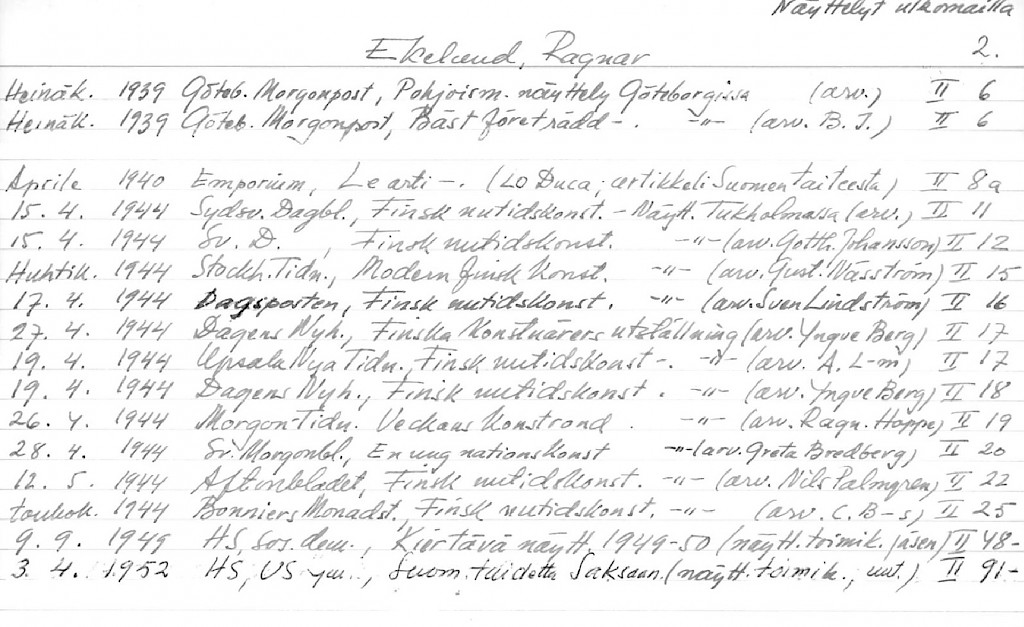 Näyttelyt ulkomailla
Ekelund, Ragnar 2.
Heinäk. 1939 Göteb. Morgonpost, Pohjoism. näyttely Göteborgissa (arv.) II 6
Heinäk. 1939 Göteb. Morgonpost, Bäst företrädd -. -"- (arv. B. J.) II 6
Aprile 1940 Emporium, Le arti -. (Lo Duca; artikkeli Suomen taiteesta) II 8a
15. 4. 1944 Sydsv. Dagbl., Finsk nutidskonst. - Näytt. Tukholmassa (arv.) II 11
15. 4. 1944 Sv. D., Finsk nutidskonst. -"- (arv. Gotth. Johansson) II 12
Huhtik. 1944 Stockh. Tidn., Modern finsk konst. -"- (arv. Gust. Näsström) II 15
17. 4. 1944 Dagsposten, Finsk nutidskonst. -"- (arv. Sven Lindström) II 16
27. 4. 1944 Dagens Nyh., Finska konstnärers utställning (arv. Yngve Berg) II 17
19. 4. 1944 Upsala Nya Tidn., Finsk nutidskonst -. -"- (arv. A. L-m) II 17
19. 4. 1944 Dagens Nyh., Finsk nutidskonst. -"- (arv. Yngve Berg) II 18
26. 4. 1944 Morgon-Tidn. Veckans konstrond. -"- (arv. Ragn. Hoppe) II 19
28. 4. 1944 Sv. Morgonbl., En ung nationskonst -"- (arv. Greta Bredberg) II 20
12. 5. 1944 Aftonbladet, Finsk nutidskonst. -"- (arv. Nils Palmgren) II 22
toukok. 1944 Bonniers Månadst., Finsk nutidskonst. -"- (arv. C. B-s) II 25
9. 9. 1949 HS, Sos. dem., Kiertävä näytt. 1949-50 (näytt. toimik. jäsen) II 48-
3. 4. 1952 HS, US ym., Suom. taidetta Saksaan. (näytt. toimik., uut.) II 91-